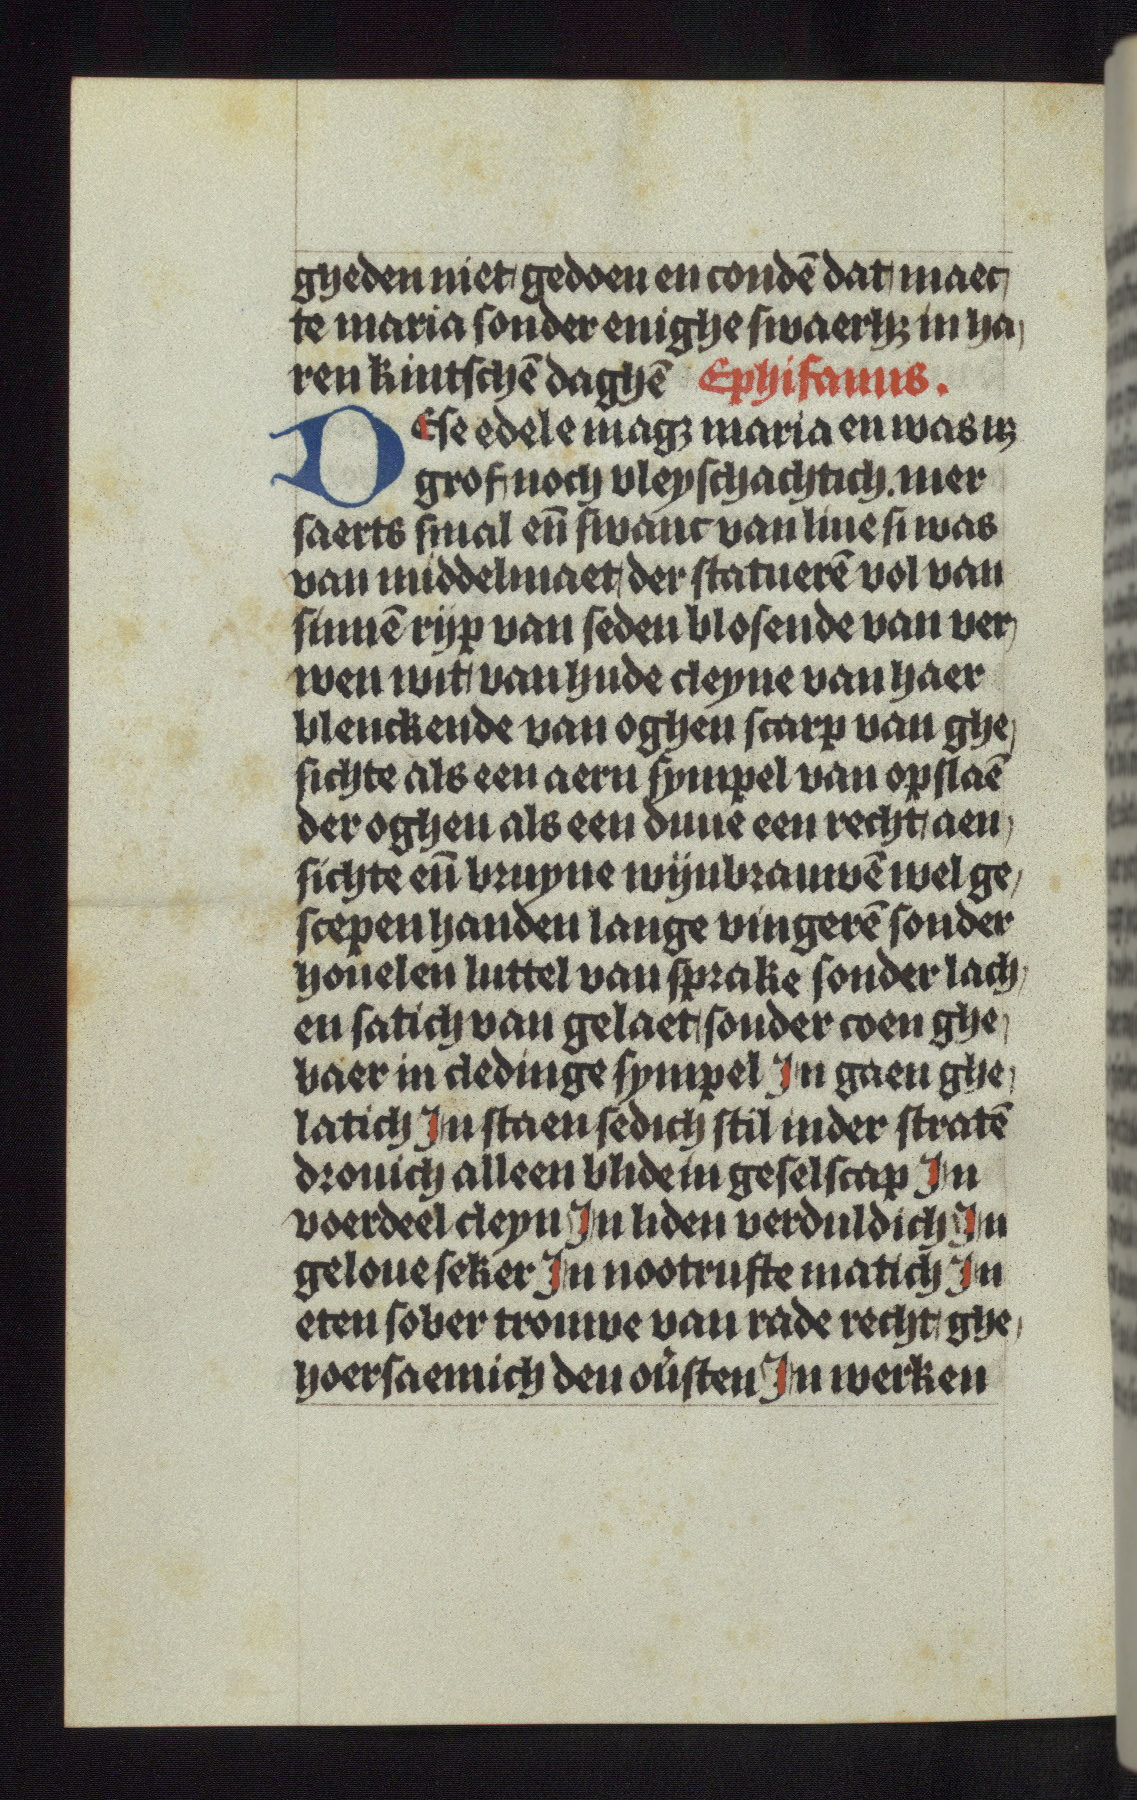 gheden niet gedoen en condē dat maec
te maria sonder enighe swaerhꝫ in ha
ren kintschē daghē Ephifanus.
DEse edele magꝫ maria en was nꝫ
grof noch vleyschachtich. mer
saerts smal eñ swanc van liue si was
van middelmaet der statuerē vol van
sinnē rijp van seden blosende van ver
wen wit van hude cleyne van haer
blenckende van oghen scarp van ghe
sichte als een aern sympel van opslaē
der oghen als een duue een recht aen
sichte eñ bruyne wijnbrauwē wel ge
scepen handen lange vingerē sonder
houelen luttel van sprake sonder lach
en satich van gelaet sonder coen ghe
baer in cledinge sympel In gaen ghe
latich In staen sedich stil inder stratē
drouich alleen blide in geselscap In
voerdeel cleyn In liden verduldich In
geloue seker In nootrufte matich In
eten sober trouwe van rade recht ghe
hoersaemich den ou̓sten In werken